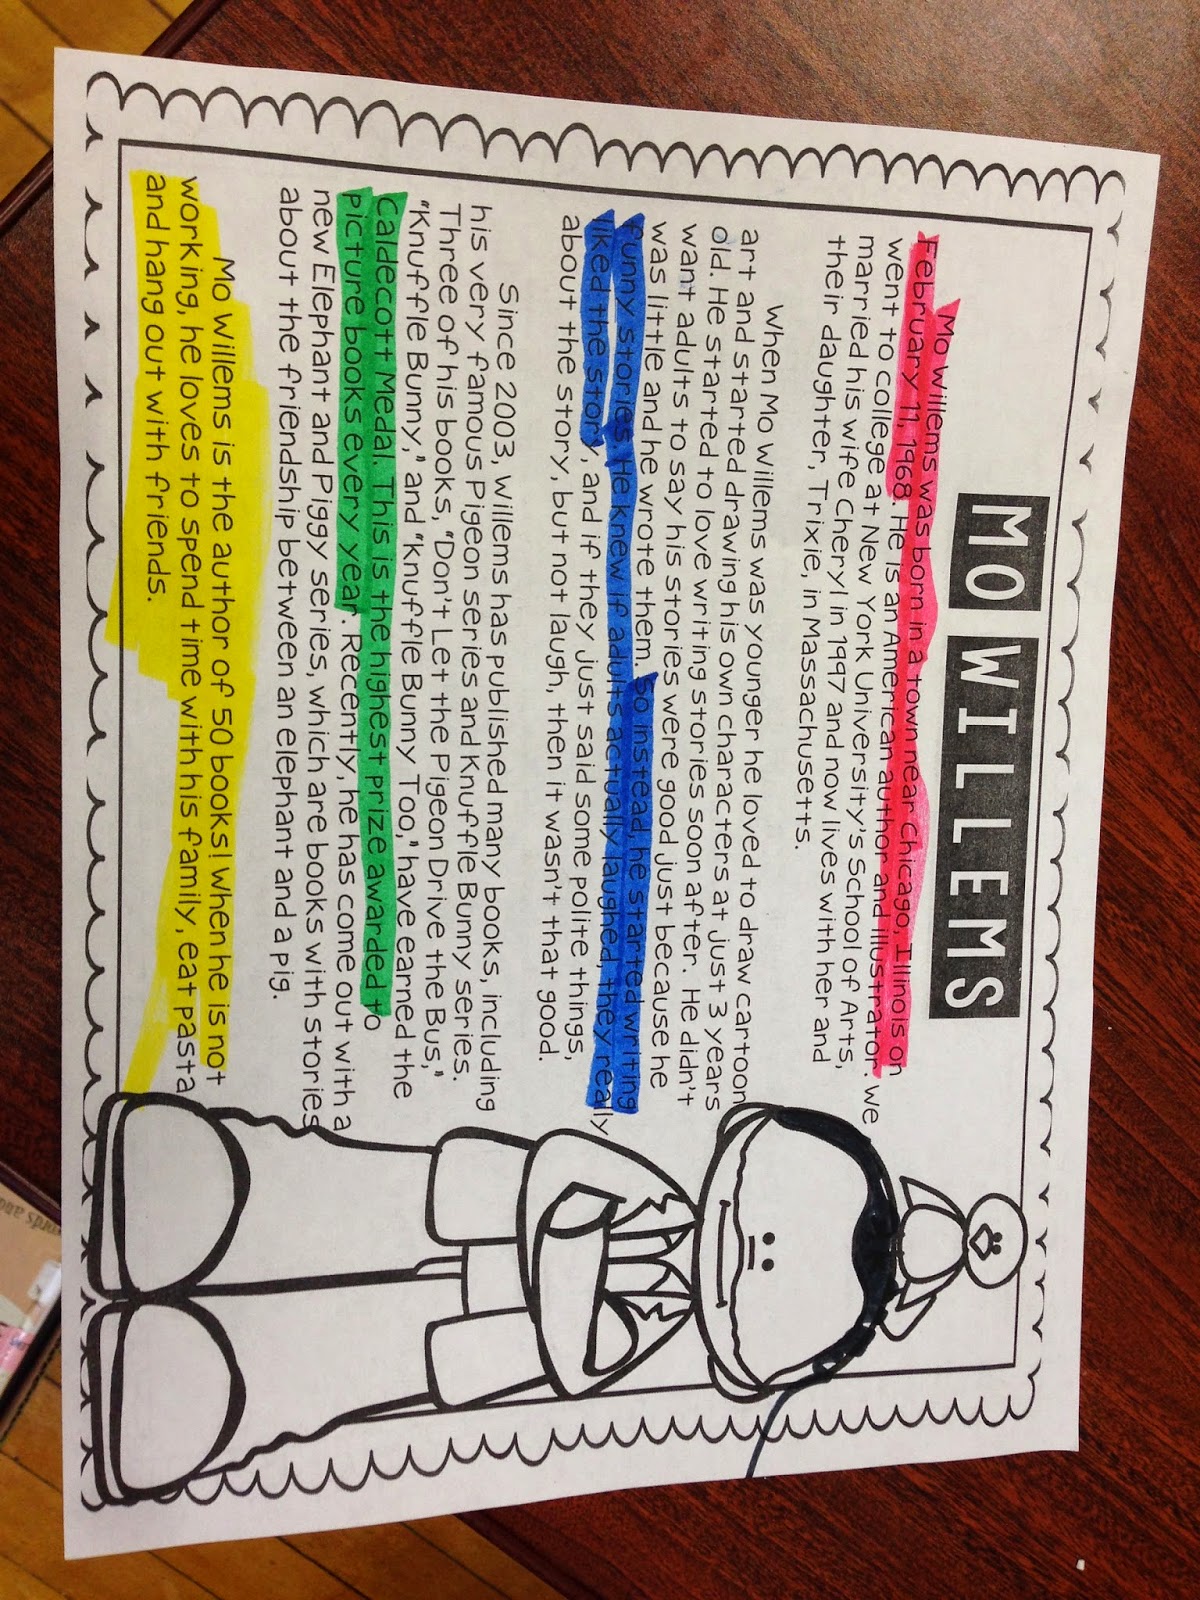 MO WILLEMS
Mo Willems was born in a town near Chicago, Illinois on
February 11, 1968. He is an American author and illustrator. We
went to college at New York University's School of Arts,
married his wife Cheryl in 1997 and now lives with her and
their daughter, Trixie, in Massachusetts.
When Mo Willems was younger he loved to draw cartoon
art and started drawing his own characters at just 3 years
old. He started to love writing stories soon after. He didn't
want adults to say his stories were good just because he
was little and he wrote them. So instead, he started writing
funny stories. He knew if adults actually laughed, they really
liked the story, and if they just said some polite things,
about the story, but not laugh, then it wasn't that good.
Since 2003, Willems has published many books, including
his very famous Pigeon series and Knuffle Bunny series.
Three of his books, "Don't Let the Pigeon Drive the Bus,"
"Knuffle Bunny," and "Knuffle Bunny Too," have earned the
Caldecott Medal. This is the highest prize awarded to
picture books every year. Recently, he has come out with a
new Elephant and Piggy series, which are books with stories
about the friendship between an elephant and a pig.
Mo Willems is the author of 50 books! When he is not
working, he loves to spend time with his family, eat pasta
and hang out with friends.